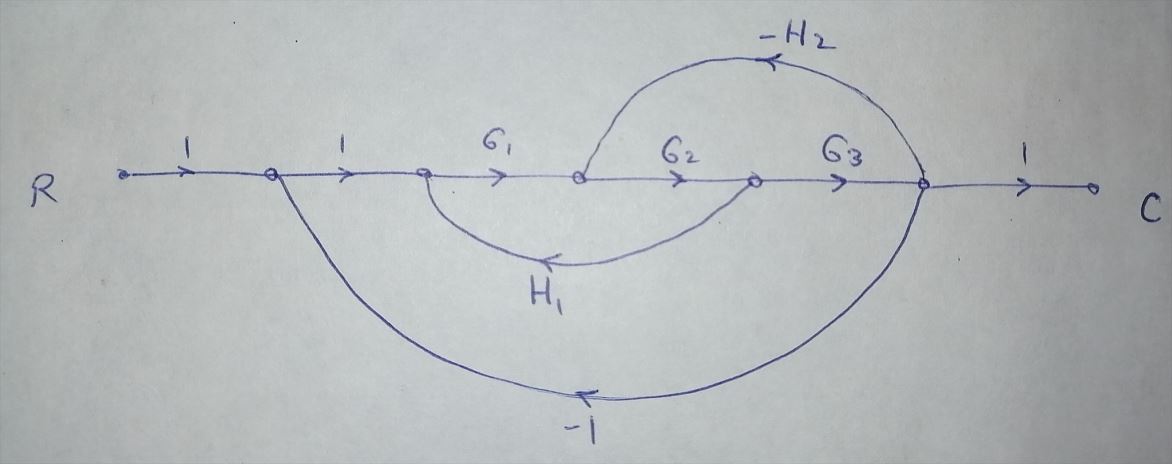 -H₂
R 1 1 G₁ G₂ G₃ 1 C
H₁
-1